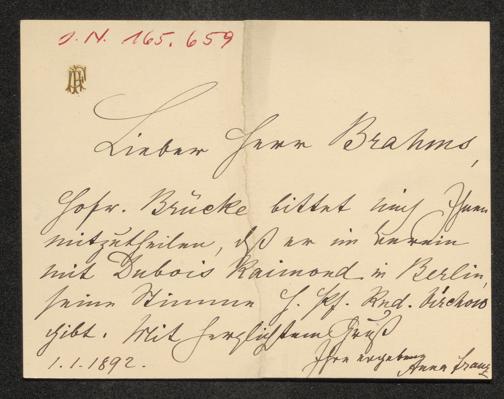 I. N. 165.659
AF
Lieber Herr Brahms,
Hofr. Brücke bittet mich Ihnen
mitzutheilen, daß er im Verein
mit Dubois Raimond in Berlin,
seine Stimme H. Pf. Rud. Virchow
gibt. Mit herzlichstem Gruß
Ihre ergebene
1.1.1892. Anna Franz